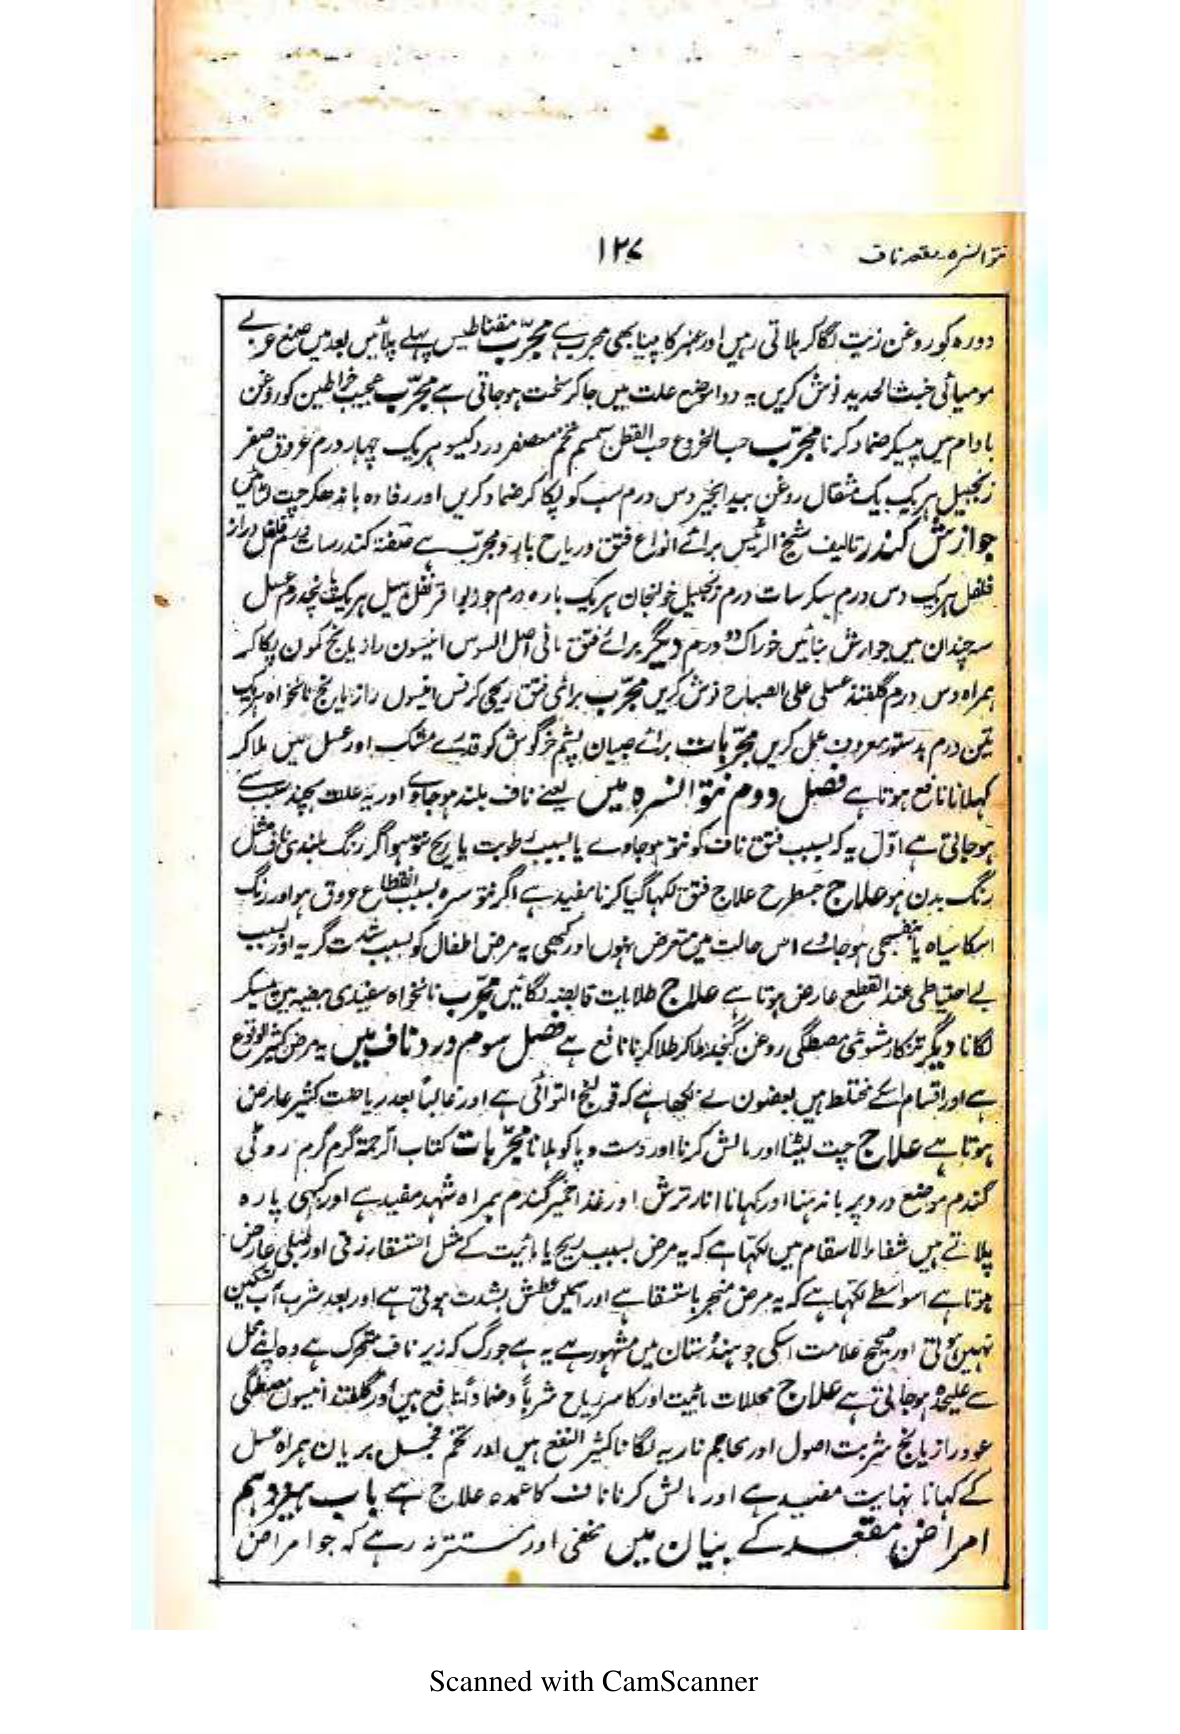 نتو السرہ۔ درد ناف
۱۲۷
دودہ کو روغن زیت لگا کر ہلاتی رہیں اور عنبر کا پینا بھی مجرب ہے مجرّب مقناطیس پہلے پلائیں بعد میں صمغ عربے
مومیائی خبث الحدید نوش کریں یہ دوا موضع علت میں جا کر سخت ہو جاتی ہے مجرّب عجیب خراطین کو روغن
بادام میں پیسکر ضماد کرنا مجرّب حب الخروع حب القطن سمسم تخم معصفر ہر یک چہار درم عروق صفر
زنجبیل ہر یک یک مثقال روغن بید انجیر دس درم سب کو پکا کر ضماد کریں اور رفادہ باندھکر چت لٹائیں
جوارش کندر تالیف شیخ الرئیس برائے انواع فتق و ریاح بارد و مجرّب ہے صفتہ کندر سات درم فلفل دراز
فلفل ہر یک دس درم سات درم زنجبیل خولنجان ہر یک بارہ درم جوزبوا قرنفل ہیل ہر یک پنجدرم عسل
سہ چندان میں جوارش بنائیں خوراک دو درم دیگر برائے فتق مائی اصل السوس انیسون رازیانج کمون پکا کر
ہمراہ دس درم گلقند عسلی علی الصباح نوش کریں مجرّب برائی فتق ریحی کرفس انیسوں رازیانج نانخواہ ہر یک
تین درم بدستور معروف عمل کریں مجرّبات برائے صبیان پشم خرگوش کو قدرے مشک اور عسل میں ملا کر
کہلانا نافع ہوتا ہے فصل دوم نتو السرہ میں یعنے ناف بلند ہو جاوے اور یہ علت بچند سبب سے
ہو جاتی ہے اوّل یہ کہ بسبب فتق ناف کو نتو ہو جاوے یا بسبب رطوبت یا ریح نتو ہو اگر رنگ بلندی ناف مثل
رنگ بدن ہو علاج جسطرح علاج فتق لکہا گیا کرنا مفید ہے اگر نتو سرہ بسبب انقطاع عروق ہو اور رنگ
اسکا سیاہ یا بنفسجی ہو جاوے اس حالت میں متعرض نہوں اور کبھی یہ مرض اطفال کو بسبب شدت گریہ اور بسبب
بے احتیاطی عند القطع عارض ہوتا ہے علاج طلایات قابضہ لگائیں مجرّب نانخواہ سفیدی بیضہ میں پیسکر
لگانا دیگر مصطگی روغن کنجد ملا کر طلا کرنا نافع ہے فصل سوم درد ناف میں یہ مرض کثیر الوقوع
ہے اور اقسام اسکے مختلط ہیں بعضون نے لکھا ہے کہ قولنج التوائی ہے اور غالباً بعد ریاضت کثیر عارض
ہوتا ہے علاج چت لیٹنا اور مالش کرنا اور دست و پا کو ہلانا مجرّبات کتاب الرحمۃ گرم گرم روٹی
گندم موضع درد پر باندہنا اور کہانا انار ترش اور غذا خمیر گندم ہمراہ شہد مفید ہے اور کبہی پارہ
پلاتے ہیں شفاء الاسقام میں لکہا ہے کہ یہ مرض بسبب ریح یا مائیت کے مثل استسقاء زقی اور طبلی عارض
ہوتا ہے اسواسطے لکہا ہے کہ یہ مرض منجر باستسقا ہے اور اسمیں عطش بشدت ہوتی ہے اور بعد شرب آب تسکین
نہیں ہوتی اور صحیح علامت اسکی جو ہندوستان میں مشہور ہے یہ ہے جو رگ کہ زیر ناف متحرک ہے وہ اپنے محل
سے علیحدہ ہو جاتی ہے علاج محللات مائیت اور کاسر ریاح شرباً و ضماداً نافع ہیں اور گلقند انیسوں مصطگی
عود رازیانج شربت اصول اور محاجم ناریہ لگانا کثیر النفع ہیں اور تخم بریان ہمراہ عسل
کے کہانا نہایت مفید ہے اور مالش کرنا ناف کا عمدہ علاج ہے باب ہیزدہم
امراض مقعد کے بیان میں مخفی اور مستتر نہ رہے کہ جو امراض
Scanned with CamScanner